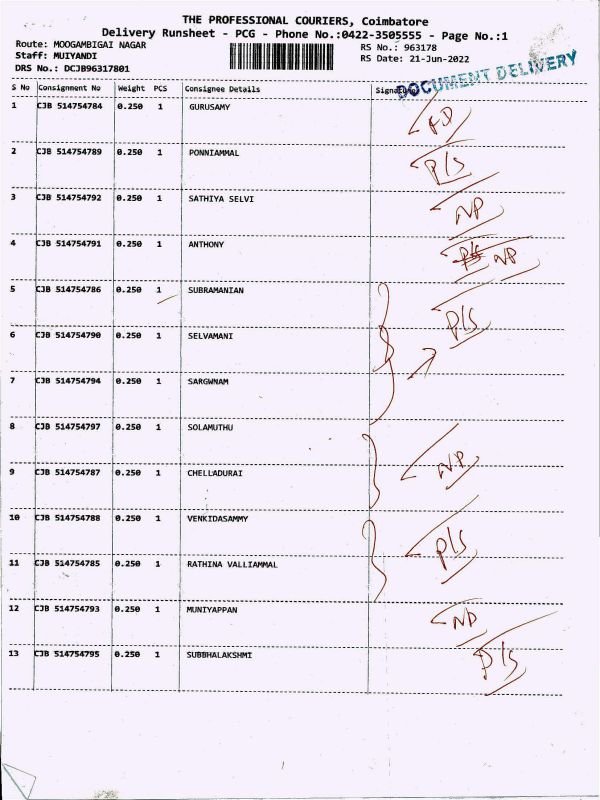 THE PROFESSIONAL COURIERS, Coimbatore
Delivery Runsheet - PCG - Phone No.:0422-3505555 - Page No.:1
Route: MOOGAMBIGAI NAGAR RS No.: 963178
Staff: MUIYANDI RS Date: 21-Jun-2022
DRS No.: DCJB96317801
DOCUMENT DELIVERY
S No Consignment No Weight PCS Consignee Details Signature
1 CJB 514754784 0.250 1 GURUSAMY
2 CJB 514754789 0.250 1 PONNIAMMAL P/S
3 CJB 514754792 0.250 1 SATHIYA SELVI NP
4 CJB 514754791 0.250 1 ANTHONY P/S NP
5 CJB 514754786 0.250 1 SUBRAMANIAN P/S
6 CJB 514754790 0.250 1 SELVAMANI
7 CJB 514754794 0.250 1 SARGWNAM
8 CJB 514754797 0.250 1 SOLAMUTHU
9 CJB 514754787 0.250 1 CHELLADURAI NP
10 CJB 514754788 0.250 1 VENKIDASAMMY P/S
11 CJB 514754785 0.250 1 RATHINA VALLIAMMAL
12 CJB 514754793 0.250 1 MUNIYAPPAN NP
13 CJB 514754795 0.250 1 SUBBHALAKSHMI P/S